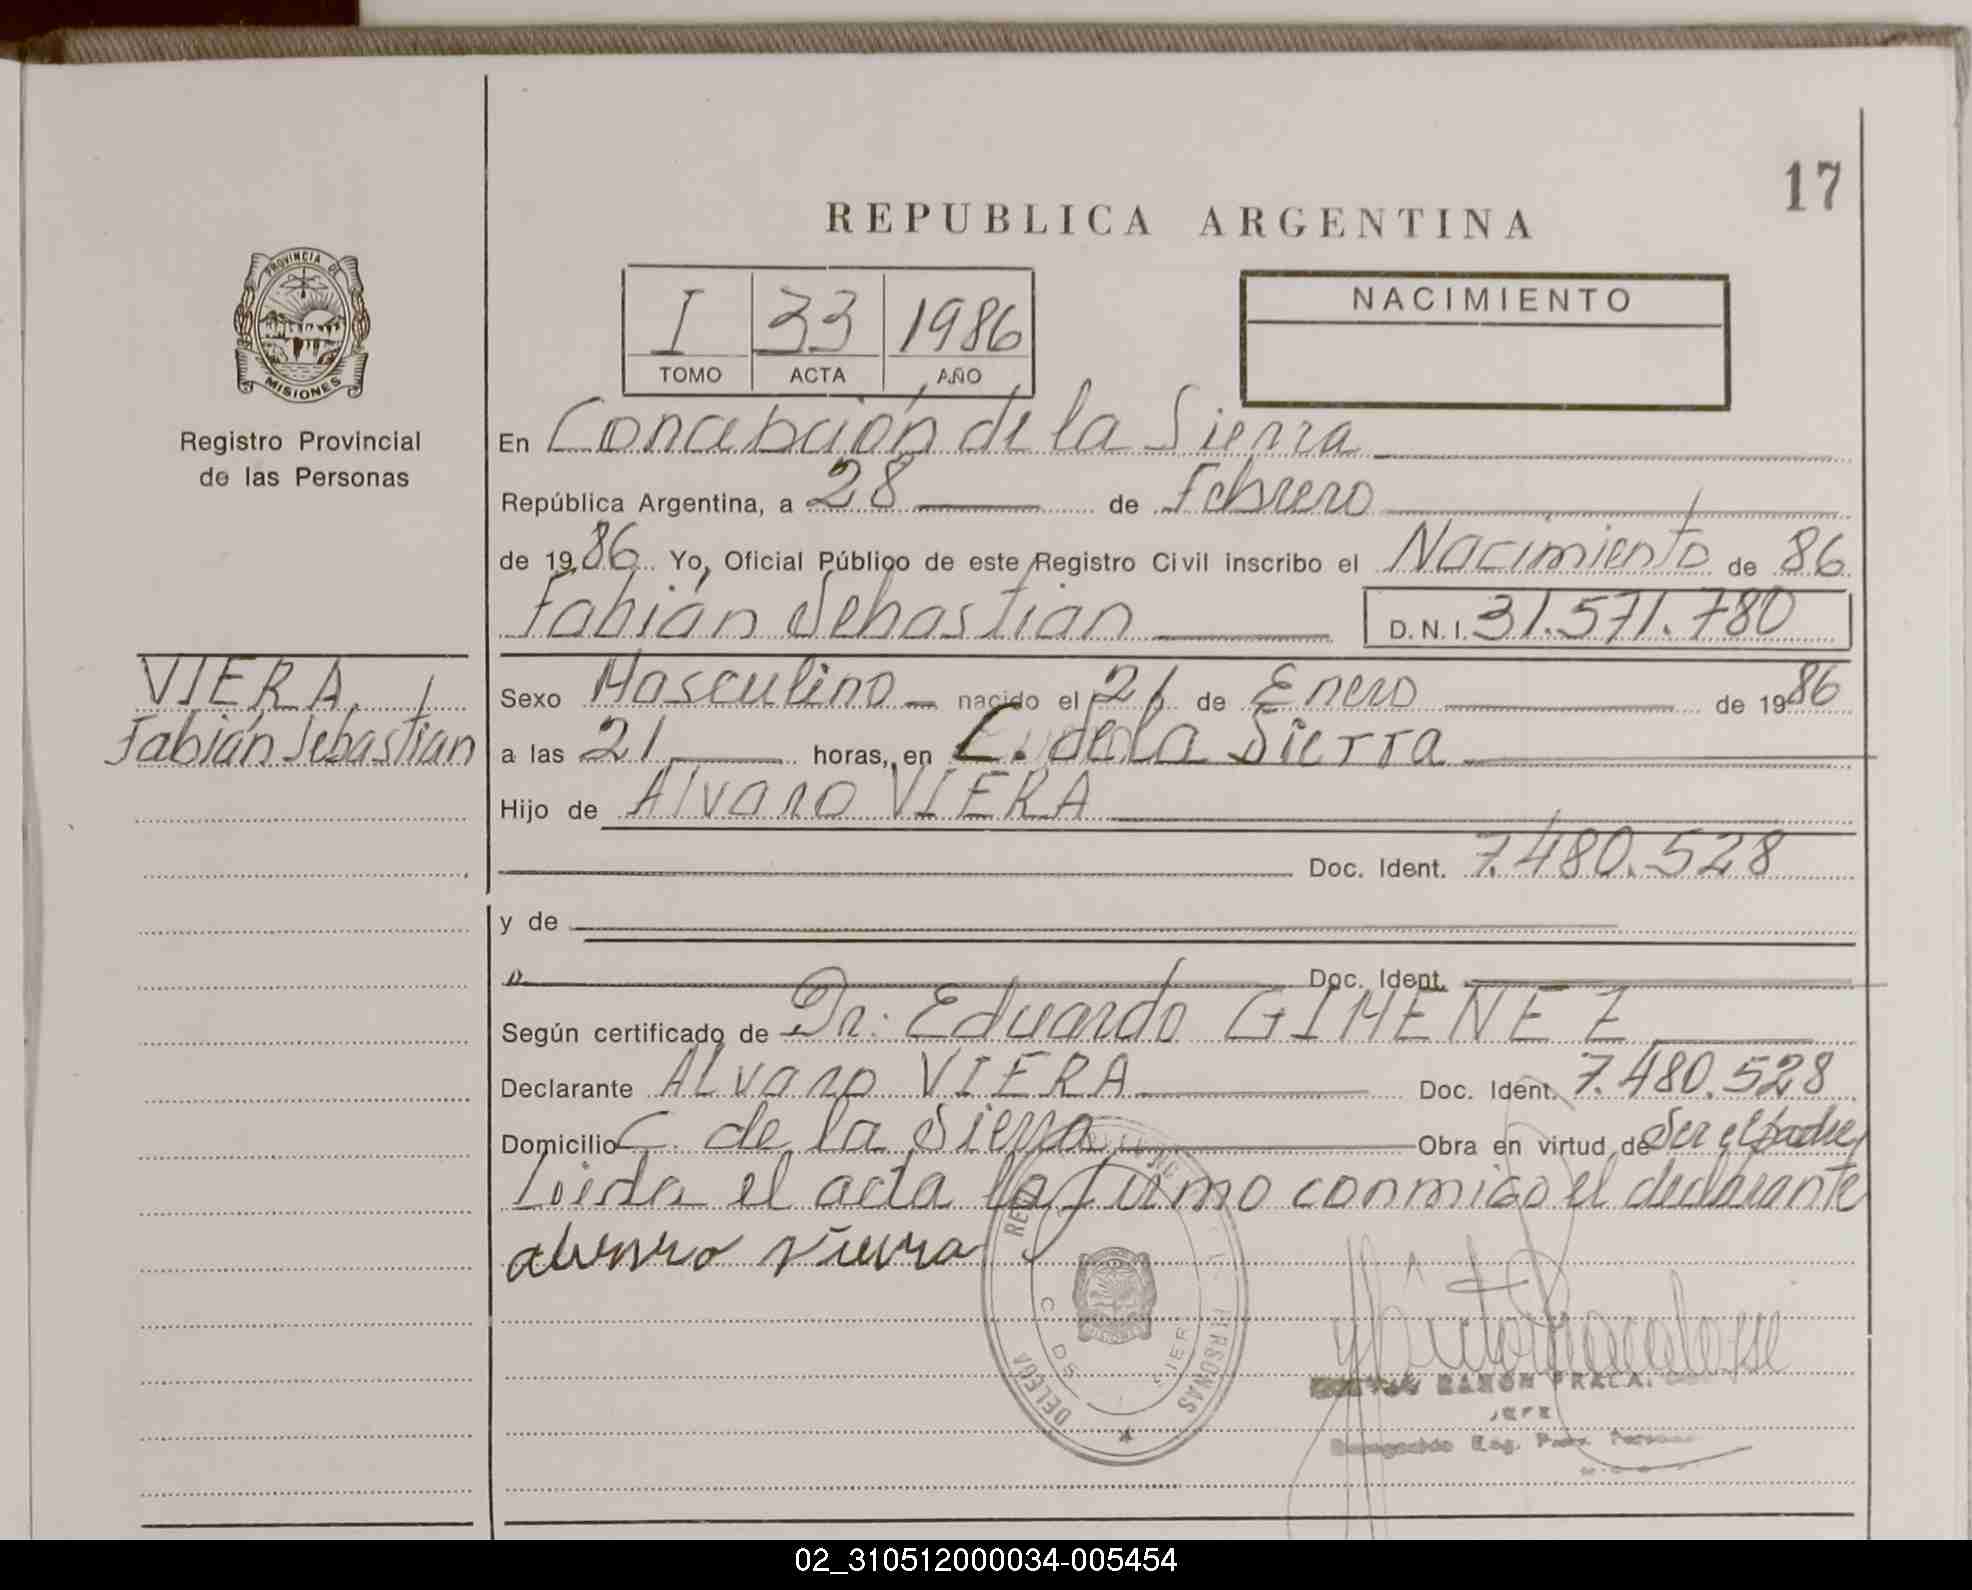 17
REPUBLICA ARGENTINA
PROVINCIA DE
MISIONES
Registro Provincial
de las Personas
I 33 1986
TOMO ACTA AÑO
NACIMIENTO
En Concepción de la Sierra
República Argentina, a 28 de Febrero
de 1986 Yo, Oficial Público de este Registro Civil inscribo el Nacimiento de 86
Fabián Sebastian D.N.I. 31.571.780
VIERA
Fabián Sebastian
Sexo Masculino nacido el 21 de Enero de 1986
a las 21 horas, en C. de la Sierra
Hijo de Alvaro VIERA
Doc. Ident. 7.480.528
y de
Doc. Ident.
Según certificado de Dr: Eduardo GIMENEZ
Declarante ALvaro VIERA Doc. Ident. 7.480.528
Domicilio C. de la Sierra Obra en virtud de Ser el padre
Leida el acta la firmo conmigo el declarante
alvaro viera
PERSONAS
DELEGA
RAMON
JEFE
Reg.
02_310512000034-005454